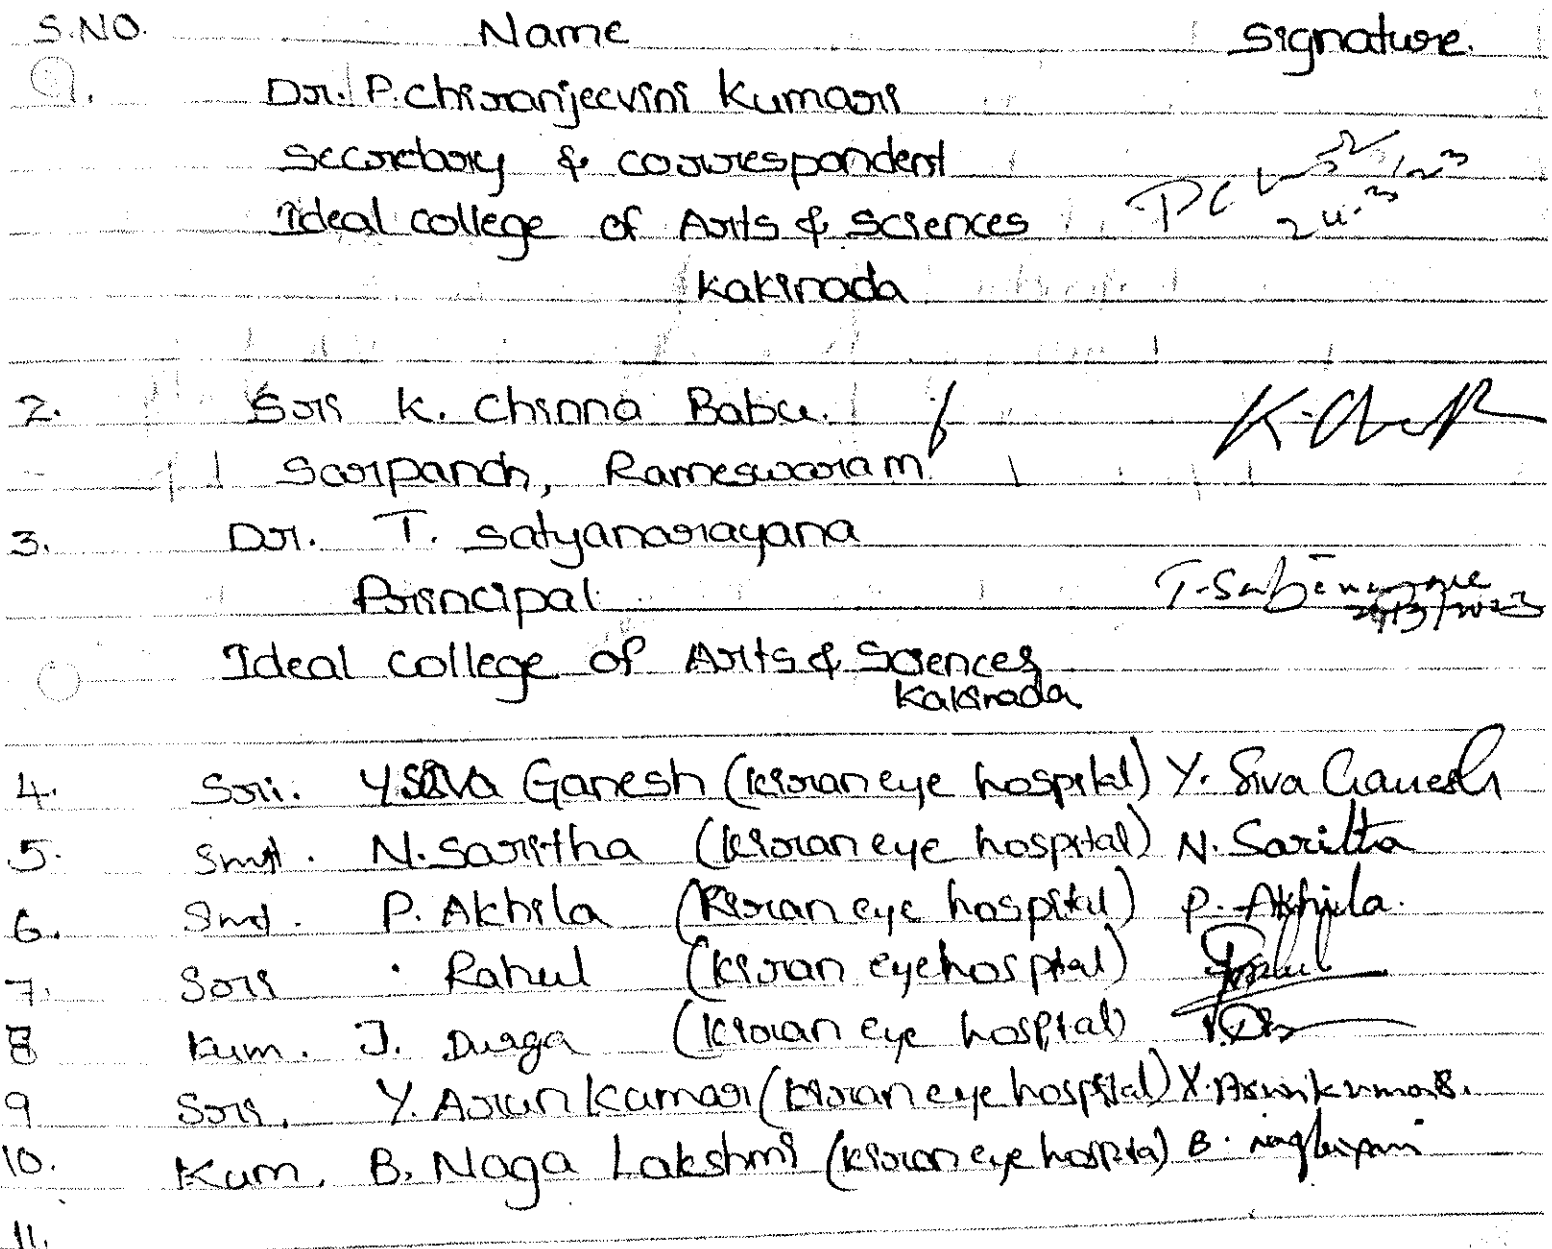 S.NO. Name Signature.
1. Dr. P. Chiranjeevini Kumari
Secretary & correspondent
Ideal college of Arts & Sciences
Kakinada
2. Sri K. Chinna Babu.
Sarpanch, Rameswaram
3. Dr. T. Satyanarayana
Principal
29/3/2023
Ideal college of Arts & Sciences
Kakinada
4. Sri. Y Siva Ganesh (Kiran eye hospital) Y. Siva Ganesh
5. Smt. N. Saritha (Kiran eye hospital) N. Saritha
6. Smt. P. Akhila (Kiran eye hospital) P. Akhila.
7. Sri Rahul (Kiran eye hospital)
8 Kum. J. Durga (Kiran eye hospital)
9 Sri. Y. Arun Kumar (Kiran eye hospital) Y. Arun kumar.
10. Kum. B. Naga Lakshmi (Kiran eye hospital) B.
11.